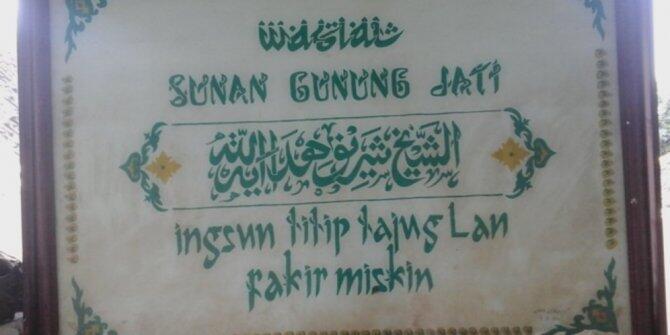 wasiat
SUNAN GUNUNG JATI
الشيخ شريف هداية الله
ingsun titip tajug Lan
fakir miskin